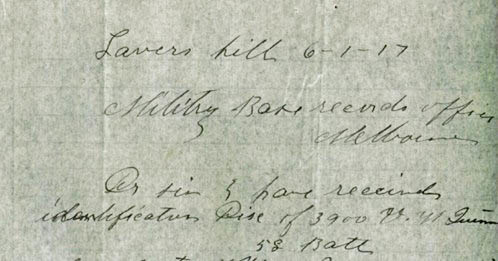 Lavers hill 6-1-17
Militry Base records office
Melbourne
Dr sir I have receivd
identification Disc of 3900
58 Batt